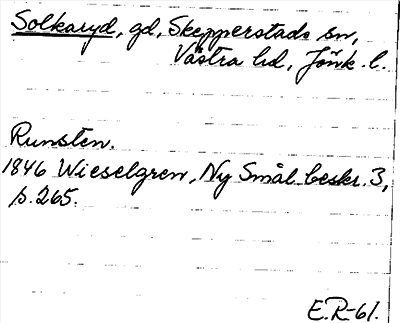 Solkaryd, gd, Skepperstads sn,
Västra hd, Jönk. l.
Runsten.
1846 Wieselgren, Ny Smål. beskr. 3,
p. 265.
E.R-61.